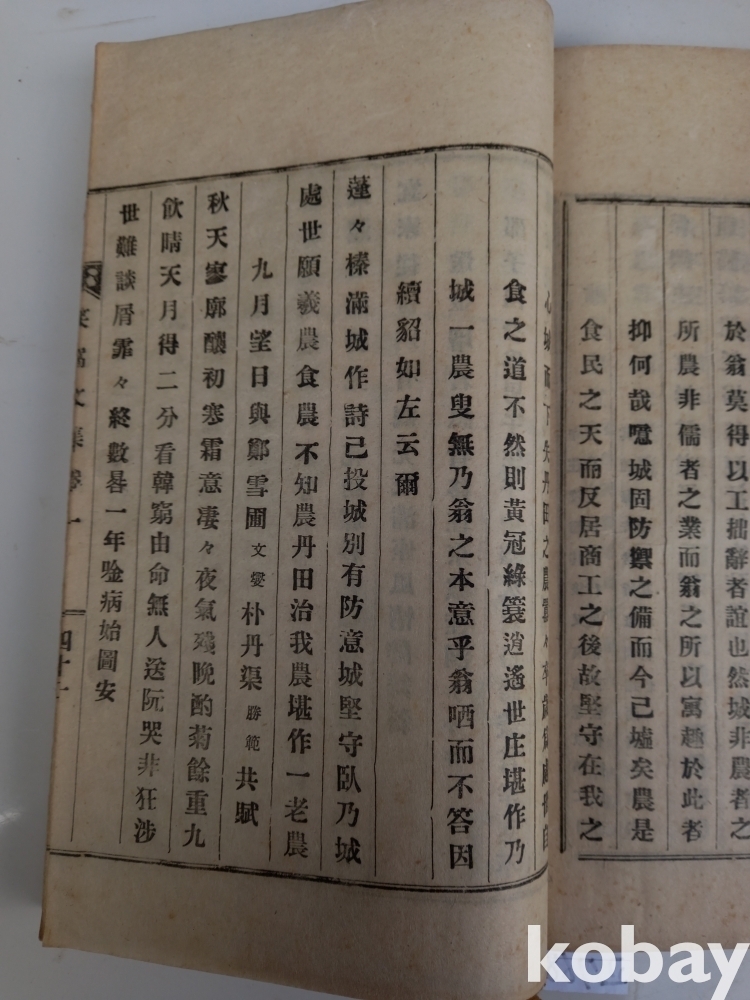 於翁莫得以工拙辭者誼也然城非農者之
所農非儒者之業而翁之所以寓趣於此者
抑何哉噫城固防禦之備而今已墟矣農是
食民之天而反居商工之後故堅守在我之
食之道不然則黃冠綠簑逍遙世庄堪作乃
城一農叟無乃翁之本意乎翁哂而不答因
續貂如左云爾
蓬々榛滿城作詩己投城別有防意城堅守臥乃城
處世願羲農食農不知農丹田治我農堪作一老農
九月望日與鄭雪圃文燮朴丹渠勝範共賦
秋天寥廓釀初寒霜意凄々夜氣殘晚酌菊餘重九
飮晴天月得二分看韓窮由命無人送阮哭非狂涉
世難談屑霏々終數晷一年唫病始圖安
文集卷一
四十一
kobay